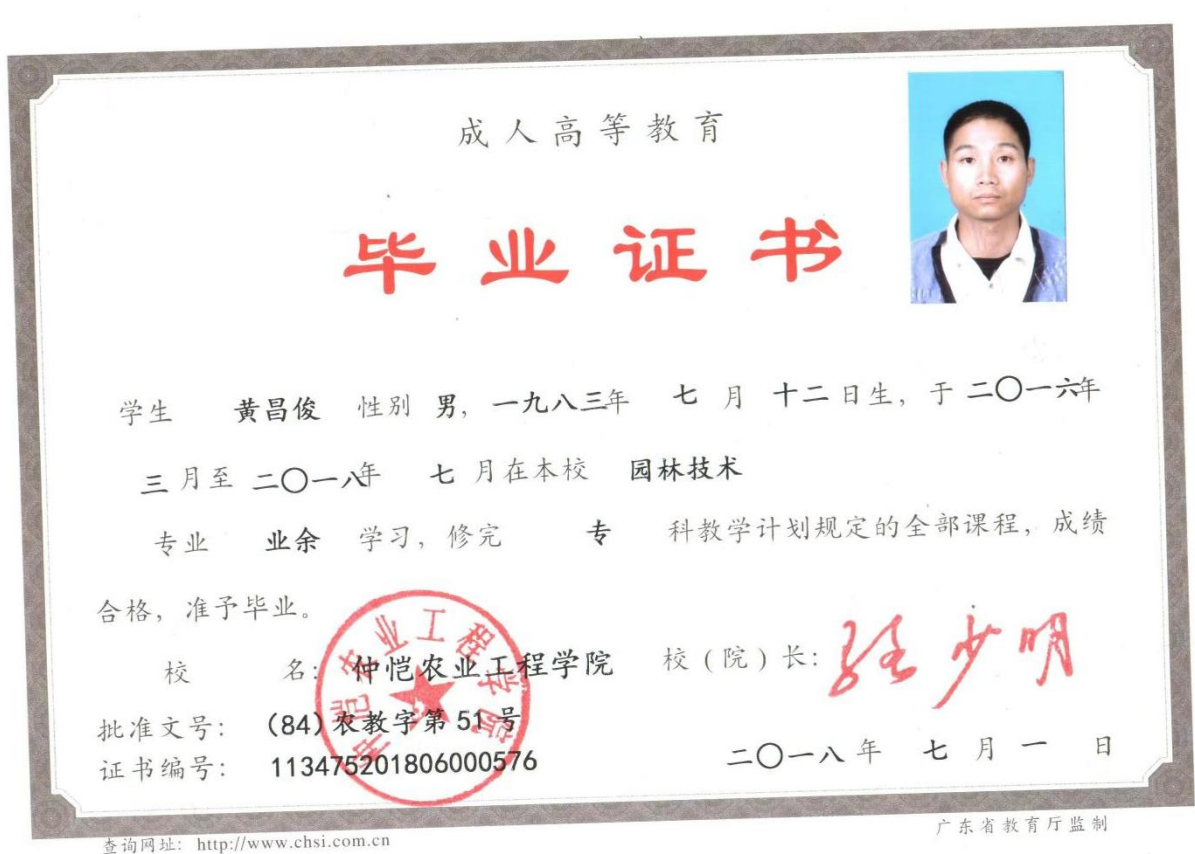 成人高等教育
毕业证书
学生 黄昌俊 性别 男，一九八三年 七 月 十二日生，于二〇一六年
三月至 二〇一八年 七 月在本校 园林技术
专业 业余 学习，修完 专 科教学计划规定的全部课程，成绩
合格，准予毕业。
校 名：仲恺农业工程学院 校（院）长：
批准文号：(84)农教字第 51 号
证书编号：113475201806000576
二〇一八年 七 月 一 日
仲恺农业工程学院
查询网址：http://www.chsi.com.cn
广东省教育厅监制